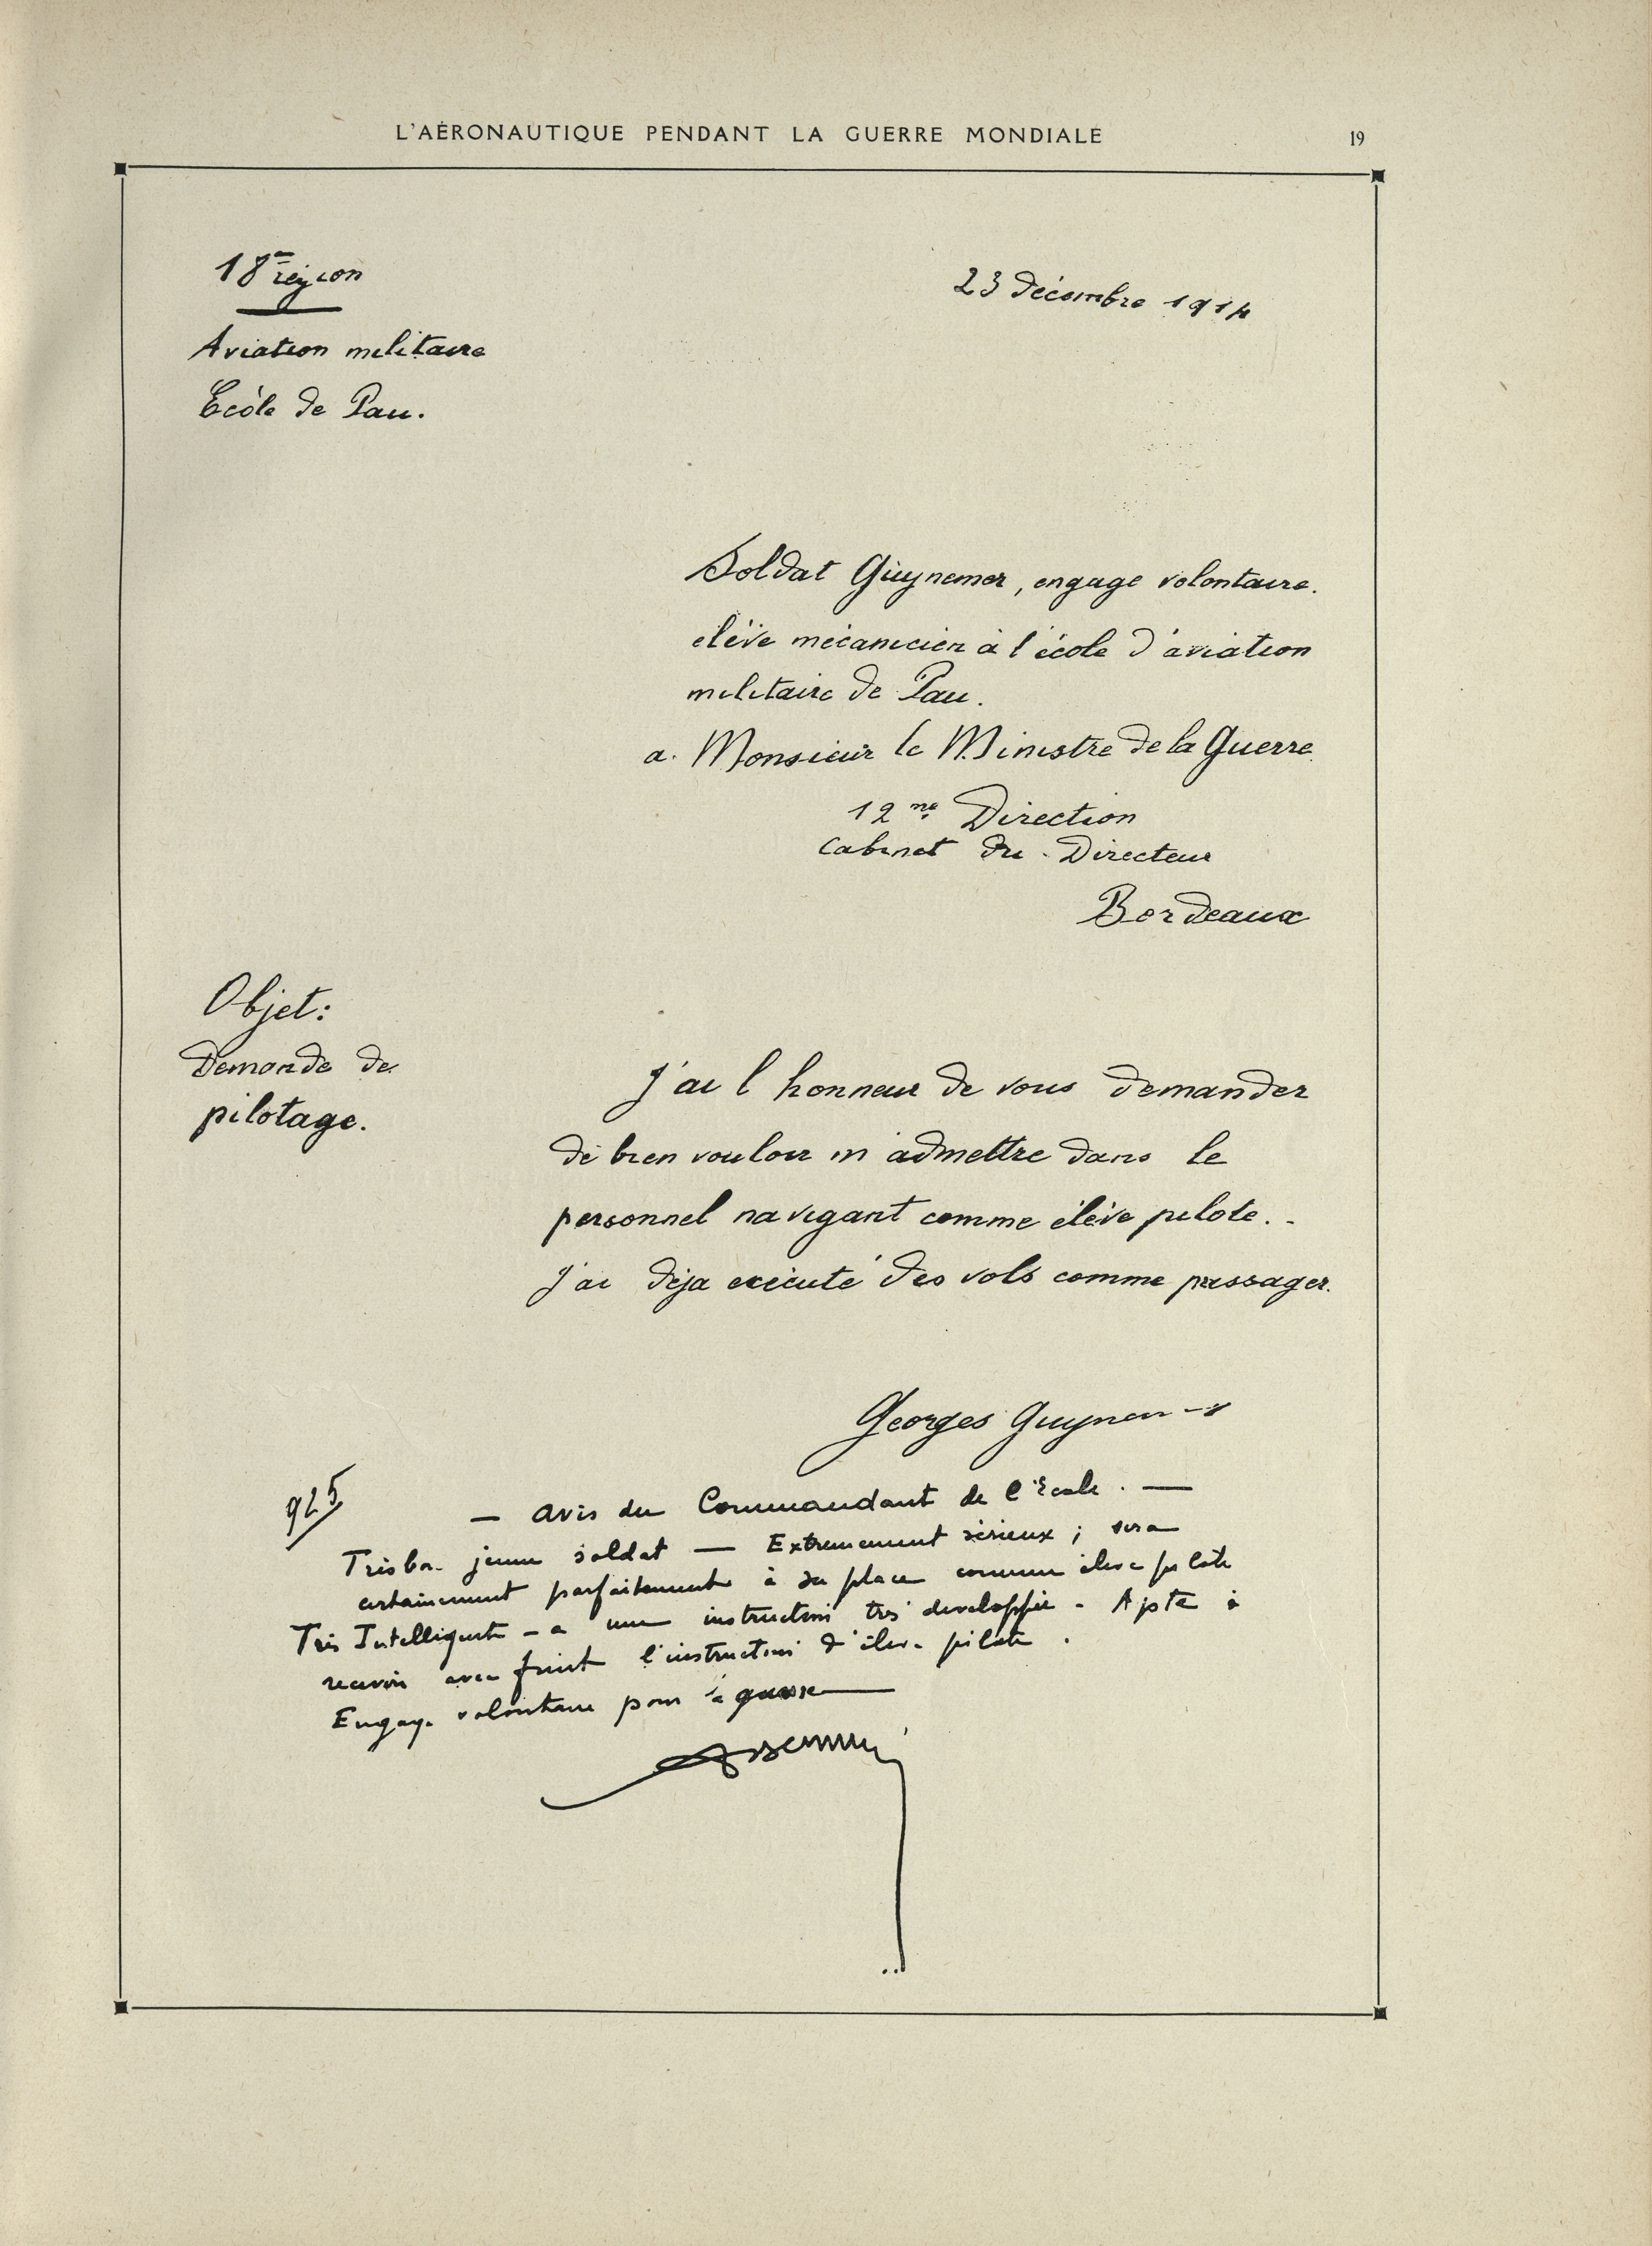 L'AÉRONAUTIQUE PENDANT LA GUERRE MONDIALE 19
18me région
23 décembre 1914
Aviation militaire
Ecóle de Pau.
Soldat Guynemer, engage volontaire.
elève mécanicien à l'école d'aviation
militaire de Pau.
a. Monsieur le Ministre de la Guerre
12me Direction
Cabinet du Directeur
Bordeaux
Objet:
Demande de
pilotage.
J'ai l honneur de vous demander
de bien vouloir m'admettre dans le
personnel navigant comme élève pilote. -
J'ai déja exécuté des vols comme passager.
Georges Guynemer
925
— Avis du Commandant de l'Ecole. —
Très bon jeune soldat — Extremement sérieux ; sera
certainement parfaitement à sa place comme élève pilote
Très Intelligent - a une instruction très developpée - Apte à
recevoir avec fruit l'instruction d'élève pilote.
Engagé volontaire pour la guerre —